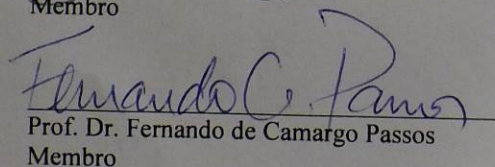 Membro
Fernando C. Passos
Prof. Dr. Fernando de Camargo Passos
Membro